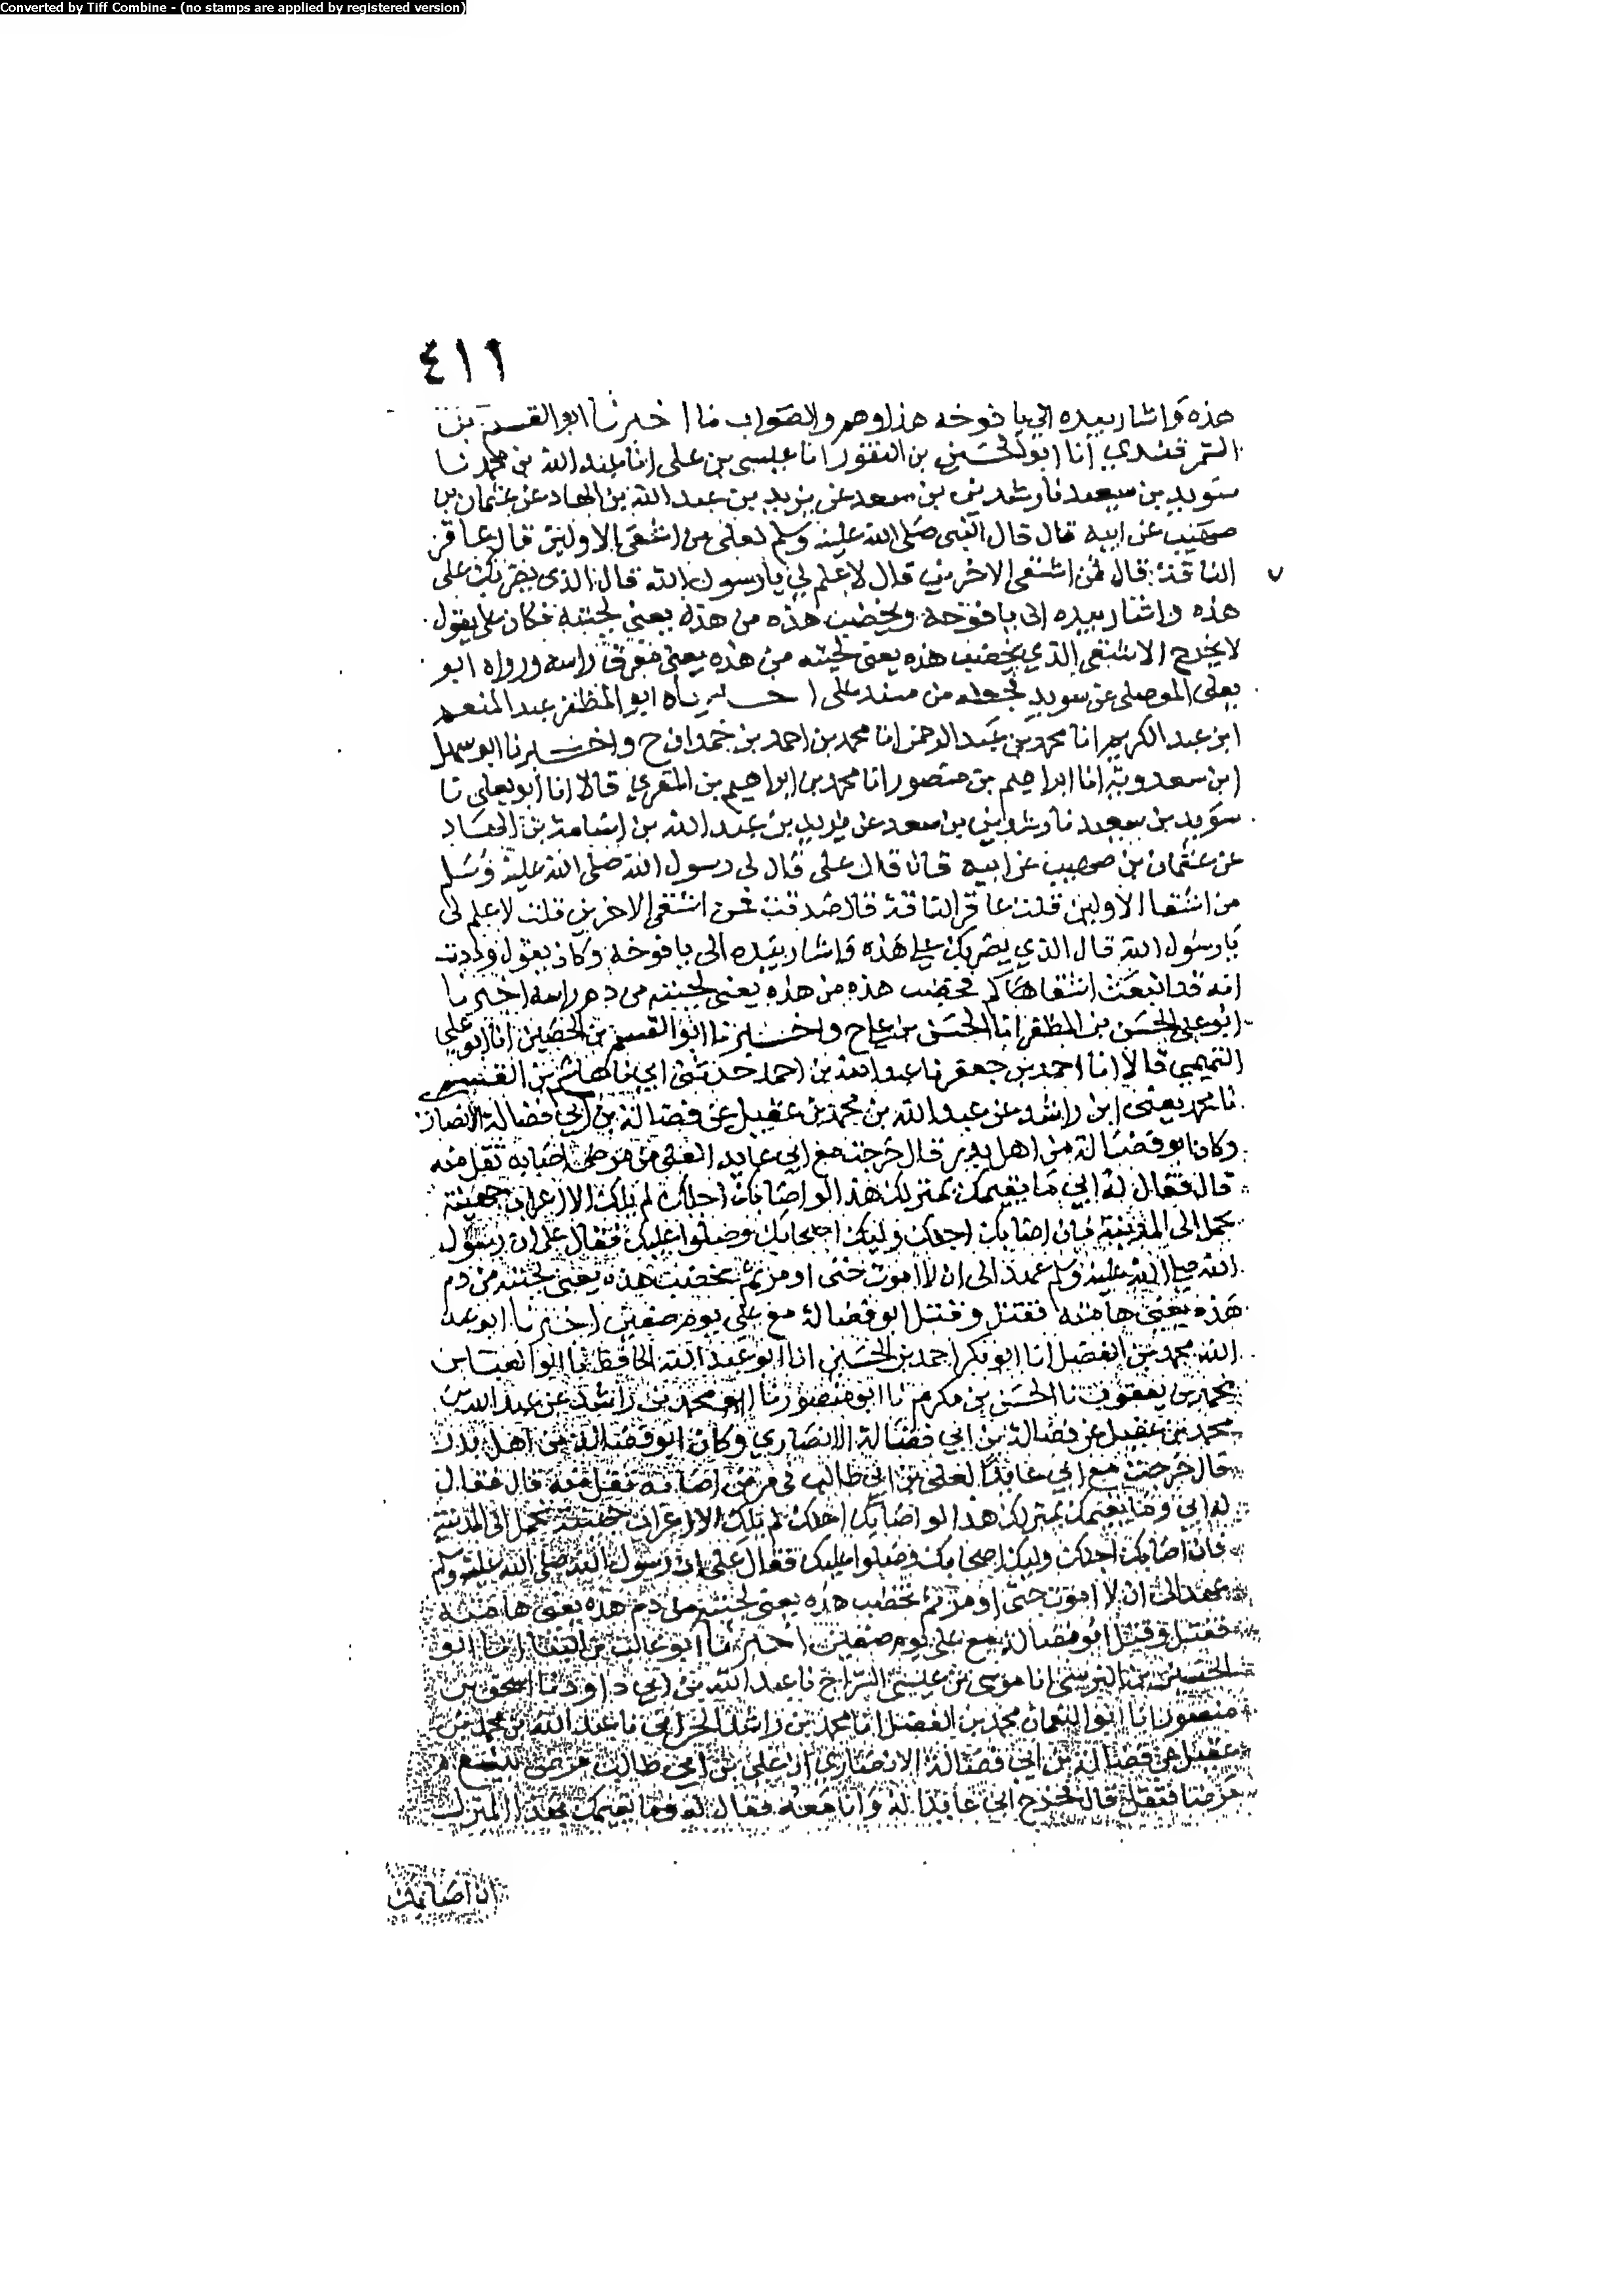 Converted by Tiff Combine - (no stamps are applied by registered version)
٤١١
هذه واشار بيده الى يافوخه هذا وهم والصواب ما اخبرنا ابو القسم بن
السمرقندي أنا ابو الحسين بن النقور انا عيسى بن علي انا عبد الله بن محمد نا
سويد بن سعيد نا رشدين بن سعد عن يزيد بن عبد الله بن الهاد عن عثمان بن
صهيب عن ابيه قال قال النبى صلى الله عليه وسلم لعلى من اشقى الاولين قال عاقر
الناقة قال فمن اشقى الاخرين قال لا علم لي يا رسول الله قال الذى يضربك على
هذه واشار بيده الى يافوخه ويخضب هذه من هذه يعني لحيته فكان على يقول
لا يخرج الاشقى الذي يخضب هذه يعنى لحيته من هذه يعنى مفرق راسه ورواه ابو
يعلى الموصلى عن سويد فجعله من مسند على اخبرناه ابو المظفر عبد المنعم
ابن عبد الكريم انا محمد بن عبد الرحمن انا محمد بن احمد بن حمدان ح واخبرنا ابو سهل
ابن سعدويه انا ابراهيم بن منصور انا محمد بن ابراهيم بن المقري قالا انا أبو يعلى نا
سويد بن سعيد نا رشدين بن سعد عن يزيد بن عبد الله بن اسامة بن الهاد
عن عثمان بن صهيب عن ابيه قال قال على قال لى رسول الله صلى الله عليه وسلم
من اشقا الاولين قلت عاقر الناقة قال صدقت فمن اشقى الاخرين قلت لا علم لى
يا رسول الله قال الذي يضربك على هذه واشار بيده الى يافوخه وكان يقول وددت
انه قد انبعث اشقاكم فخضب هذه من هذه يعنى لحيته من دم راسه اخبرنا
ابو على الحسن بن المظفر انا الحسن بن على ح واخبرنا ابو القسم بن الحصين انا ابو على
التميمي قالا انا احمد بن جعفر نا عبد الله بن احمد حدثنى ابي نا هاشم بن القسم
نا محمد يعنى ابن راشد عن عبد الله بن محمد بن عقيل عن فضالة بن ابي فضالة الانصار
وكان ابو فضالة من اهل بدر قال خرجت مع ابي عايدا لعلى من مرض اصابه ثقل منه
قال فقال له ابي ما يقيمك بمنزلك هذا لو اصابك اجلك لم يلك الا اعراب جهينة
تحمل الى المدينة فان اصابك اجلك وليك اصحابك وصلوا عليك فقال على ان رسول
الله صلى الله عليه وسلم عهد الى ان لا اموت حتى اومر ثم تخضب هذه يعنى لحيته من دم
هذه يعنى هامته فقتل وقتل ابو فضالة مع على يوم صفين اخبرنا ابو عبد
الله محمد بن الفضل انا ابو بكر احمد بن الحسين انا ابو عبد الله الحافظ نا ابو العباس
محمد بن يعقوب نا الحسن بن مكرم نا ابو منصور نا ابو محمد بن راشد عن عبد الله بن
محمد بن عقيل عن فضالة بن ابي فضالة الانصاري وكان ابو فضالة من اهل بدر
قال خرجت مع ابي عايدا لعلى بن ابي طالب فى مرض اصابه ثقل منه قال فقال
له ابي وما يقيمك بمنزلك هذا لو اصابك اجلك لم يلك الا اعراب جهينة تحمل الى المدينة
فان اصابك اجلك وليك اصحابك وصلوا عليك فقال على ان رسول الله صلى الله عليه وسلم
عهد الى ان لا اموت حتى اومر ثم تخضب هذه يعنى لحيته من دم هذه يعنى هامته
فقتل وقتل ابو فضالة مع على يوم صفين اخبرنا ابو غالب بن البنا انا ابو
الحسين بن النرسى انا موسى بن عيسى السراج نا عبد الله بن ابي داود نا اسحق بن
منصور انا ابو النعمان محمد بن الفضل انا محمد بن راشد الخزاعي نا عبد الله بن محمد بن
عقيل عن فضالة بن ابي فضالة الانصاري ان على بن ابي طالب مرض بينبع
مرضا فثقل قال فخرج ابي عايدا له وانا معه فقال له وما يقيمك بهذا المنزل
ان اصابك